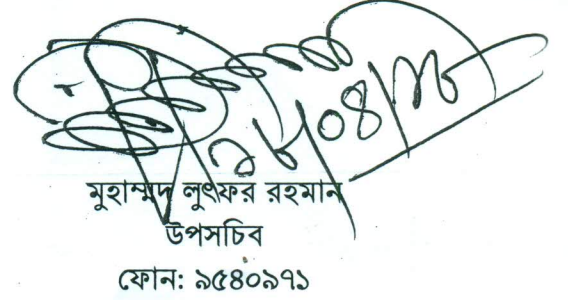 মুহাম্মদ লুৎফর রহমান
উপসচিব
ফোন: ৯৫৪০৯৭১